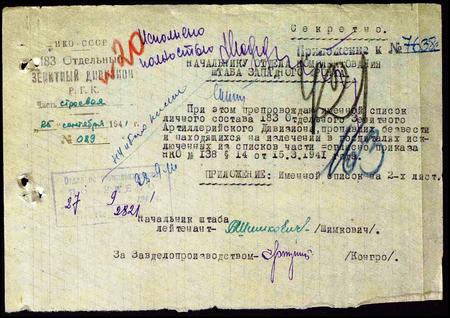 Секретно.
НКО-СССР
183 Отдельный
ЗЕНИТНЫЙ ДИВИЗИОН
Р. Г. К.
Часть строевая
25 сентября 1941 г.
№ 029
№ 20
Исполнено
полностью
Приложение к № 7638с
НАЧАЛЬНИКУ ОТДЕЛА УКОМПЛЕКТОВАНИЯ
ШТАБА ЗАПАДНОГО ФРОНТА
При этом препровождаю именной список
личного состава 183 Отдельного Зенитного
Артиллерийского Дивизиона пропавших безвести
и находящихся на излечении в госпиталях иск-
люченных из списков части согласно приказа
НКО № 138 § 14 от 15.3.1941 г.
ПРИЛОЖЕНИЕ: Именной список на 2-х лист.
28.9.41
27 9
2821
Начальник штаба
лейтенант- /Шимкович/.
За Завделопроизводством- /Конгро/.